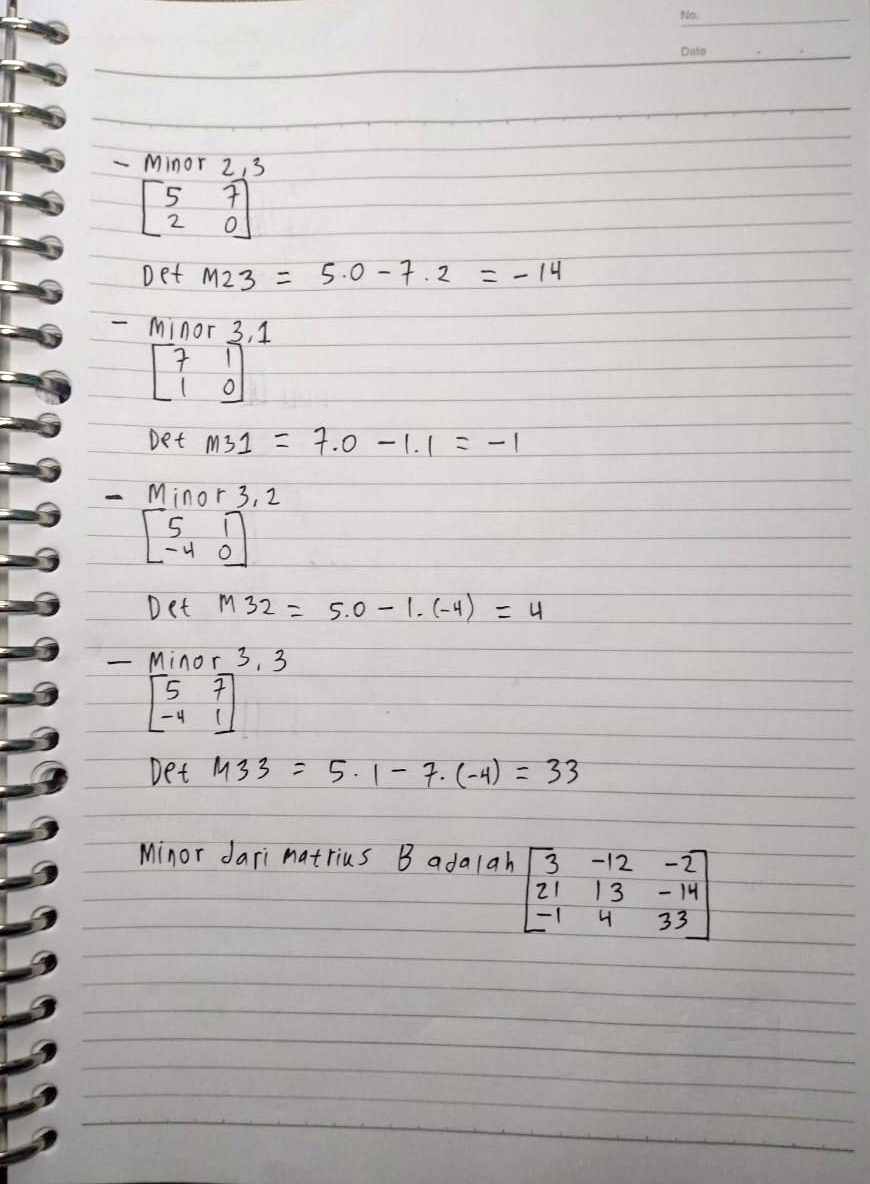 No.
Date
- Minor 2,3
[5 7]
[2 0]
Det M23 = 5.0 - 7.2 = -14
- Minor 3,1
[7 1]
[1 0]
Det M31 = 7.0 - 1.1 = -1
- Minor 3,2
[5 1]
[-4 0]
Det M32 = 5.0 - 1.(-4) = 4
- Minor 3,3
[5 7]
[-4 1]
Det M33 = 5.1 - 7.(-4) = 33
Minor dari matrius B adalah [3 -12 -2]
[21 13 -14]
[-1 4 33]